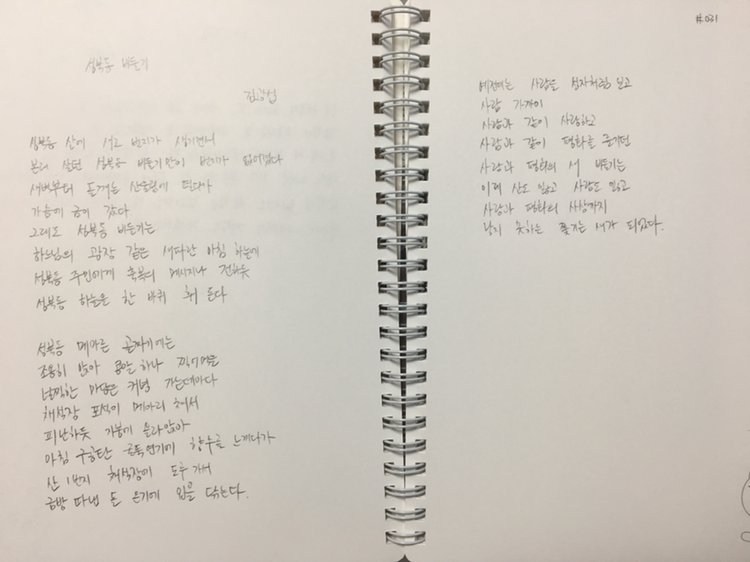 #.031
성북동 비둘기
김광섭
성북동 산에 새로 번지가 생기면서
본래 살던 성북동 비둘기만이 번지가 없어졌다
새벽부터 돌깨는 산울림에 떨다가
가슴에 금이 갔다
그래도 성북동 비둘기는
하느님의 광장 같은 새파란 아침 하늘에
성북동 주민에게 축복의 메시지나 전하듯
성북동 하늘을 한 바퀴 휘 돈다
성북동 메마른 골짜기에는
조용히 앉아 콩알 하나 찍어먹을
널찍한 마당은 커녕 가는데마다
채석장 포성이 메아리 쳐서
피난하듯 지붕에 올라앉아
아침 구공탄 굴뚝연기에 향수를 느끼다가
산 1번지 채석장에 도루 가서
금방 따낸 돌 온기에 입을 닦는다.
예전에는 사람을 성자처럼 보고
사람 가까이
사람과 같이 사랑하고
사람과 같이 평화를 즐기던
사랑과 평화의 새 비둘기는
이제 산도 잃고 사람도 잃고
사랑과 평화의 사상까지
낳지 못하는 쫓기는 새가 되었다.